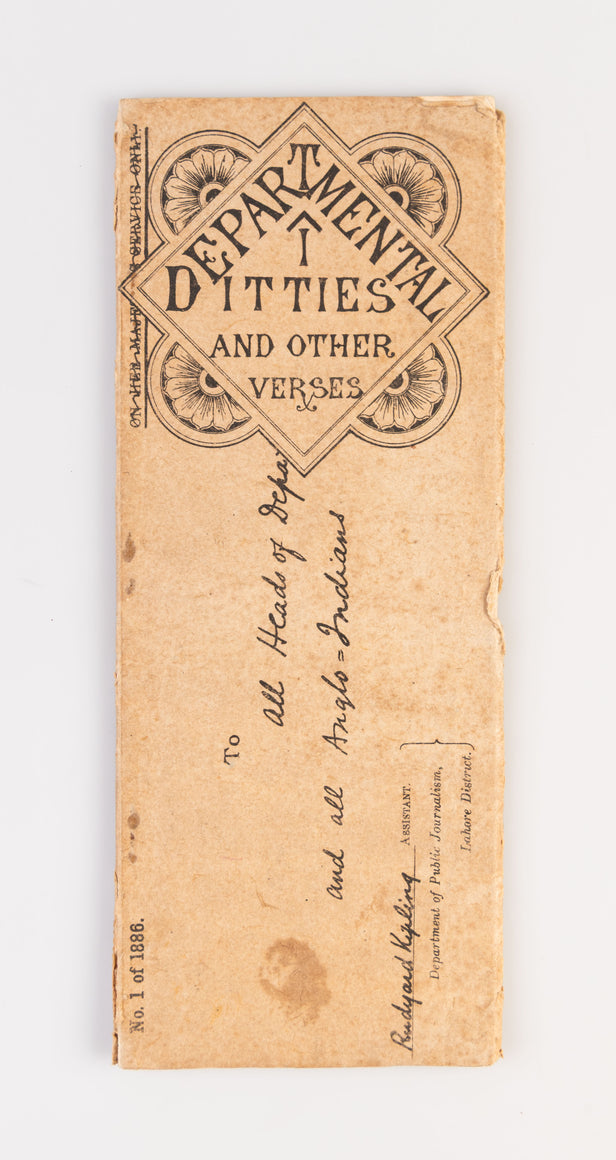 DEPARTMENTAL
DITTIES
AND OTHER
VERSES
ON HER MAJESTY'S SERVICE ONLY.
No. 1 of 1886.
To
all Heads of Depar
and all Anglo=Indians
Rudyard Kipling ASSISTANT.
Department of Public Journalism,
Lahore District.